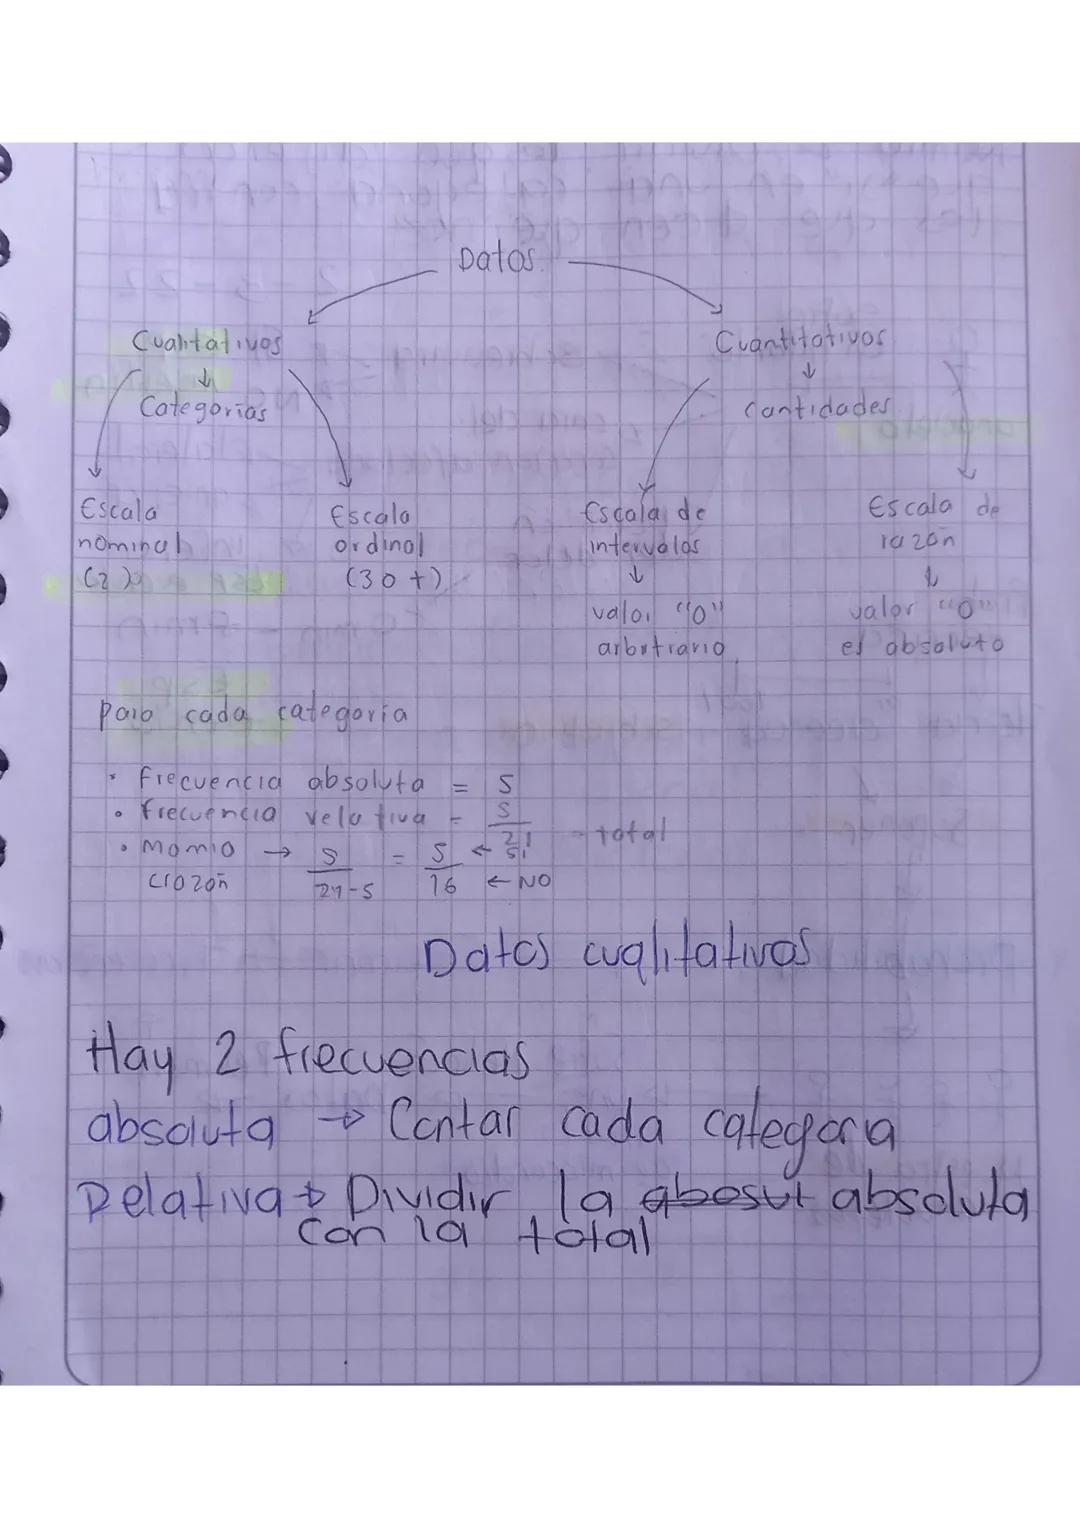 Datos
Cualitativos
↓
Categorías
Cuantitativos
↓
Cantidades
Escala
nominal
(2)
Escala
ordinal
(3 o +)
Escala de
intervalos
↓
valor "0"
arbitrario
Escala de
razón
↓
valor "0"
es absoluto
para cada categoria
• frecuencia absoluta = 5
• frecuencia relativa = 5/21 - total
• Momio → 5/21-5 = 5/16 ← si ← NO
(razón
Datos cualitativos
Hay 2 frecuencias
absoluta → Contar cada categoria
Relativa → Dividir la abosut absoluta
con la total